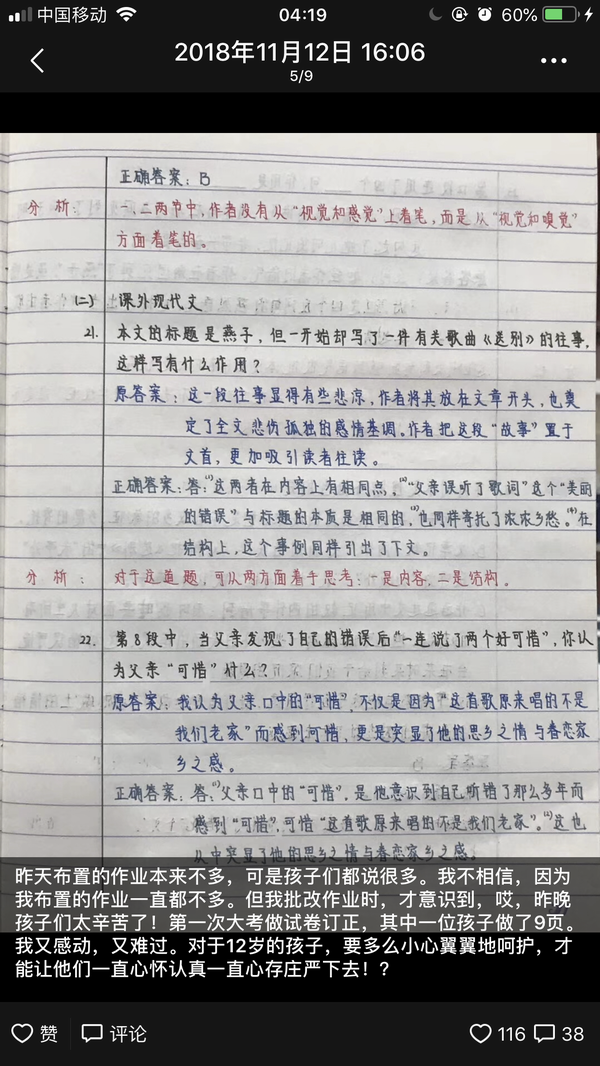 中国移动
04:19
60%
2018年11月12日 16:06
5/9
正确答案：B
分析：一、二两节中，作者没有从“视觉和感觉”上着笔，而是从“视觉和嗅觉”
方面着笔的。
(二) 课外现代文
21. 本文的标题是燕子，但一开始却写了一件有关歌曲《送别》的往事，
这样写有什么作用？
原答案：这一段往事显得有些悲凉，作者将其放在文章开头，也奠
定了全文悲伤孤独的感情基调。作者把这段“故事”置于
文首，更加吸引读者往读。
正确答案：答：⁽¹⁾这两者在内容上有相同点，⁽²⁾“父亲误听了歌词”这个“美丽
的错误”与标题的本质是相同的，⁽³⁾也同样寄托了浓浓乡愁。⁽⁴⁾在
结构上，这个事例同样引出了下文。
分析：对于这道题，可从两方面着手思考：一是内容，二是结构。
22. 第8段中，当父亲发现了自己的错误后“一连说了两个好可惜”，你认
为父亲“可惜”什么？
原答案：我认为父亲口中的“可惜”，不仅是因为“这首歌原来唱的不是
我们老家”而感到可惜，更是突显了他的思乡之情与眷恋家
乡之感。
正确答案：答：⁽¹⁾父亲口中的“可惜”，是他意识到自己听错了那么多年而
感到“可惜”，可惜“这首歌原来唱的不是我们老家”。⁽²⁾这也
从中突显了他的思乡之情与眷恋家乡之感。
昨天布置的作业本来不多，可是孩子们都说很多。我不相信，因为
我布置的作业一直都不多。但我批改作业时，才意识到，哎，昨晚
孩子们太辛苦了！第一次大考做试卷订正，其中一位孩子做了9页。
我又感动，又难过。对于12岁的孩子，要多么小心翼翼地呵护，才
能让他们一直心怀认真一直心存庄严下去！？
赞
评论
116
38